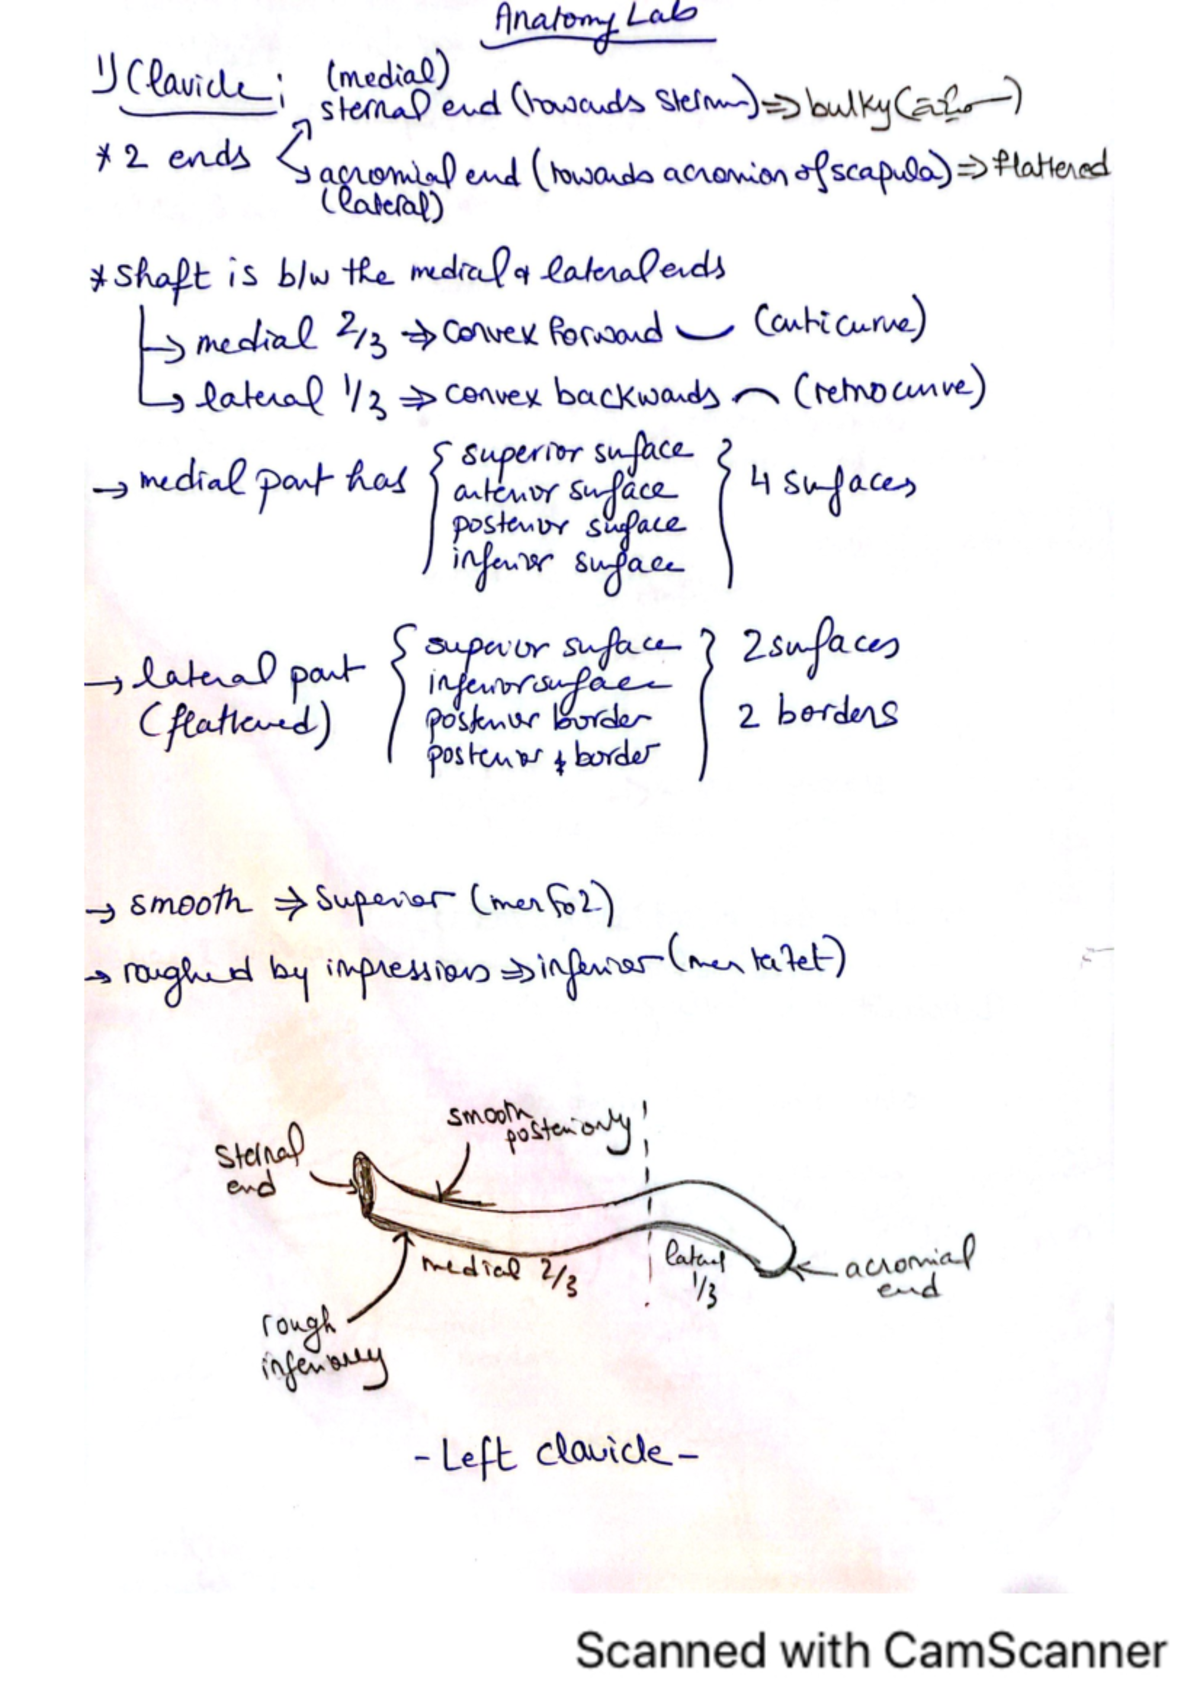 Anatomy Lab
1) Clavicle:
(medial)
sternal end (towards Sternum) => bulky
* 2 ends
acromial end (towards acromion of scapula) => flattened
(lateral)
* Shaft is b/w the medial & lateral ends
→ medial 2/3 => convex forward (anticurve)
→ lateral 1/3 => convex backwards (retrocurve)
→ medial part has
superior surface
anterior surface
posterior surface
inferior surface
4 surfaces
→ lateral part
(flattened)
superior surface
inferior surface
posterior border
posterior & border
2 surfaces
2 borders
→ smooth => superior (men fo2)
→ roughed by impressions => inferior (men ta7et)
smooth
posteriorly
sternal
end
medial 2/3
lateral
1/3
acromial
end
rough
inferiorly
- Left clavicle -
Scanned with CamScanner